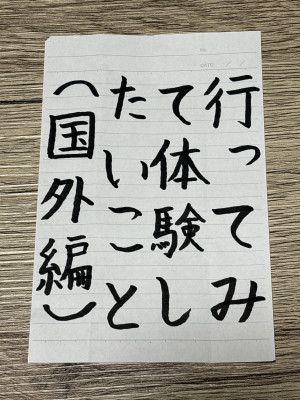 行ってみ
て体験し
たいこと
（国外編）